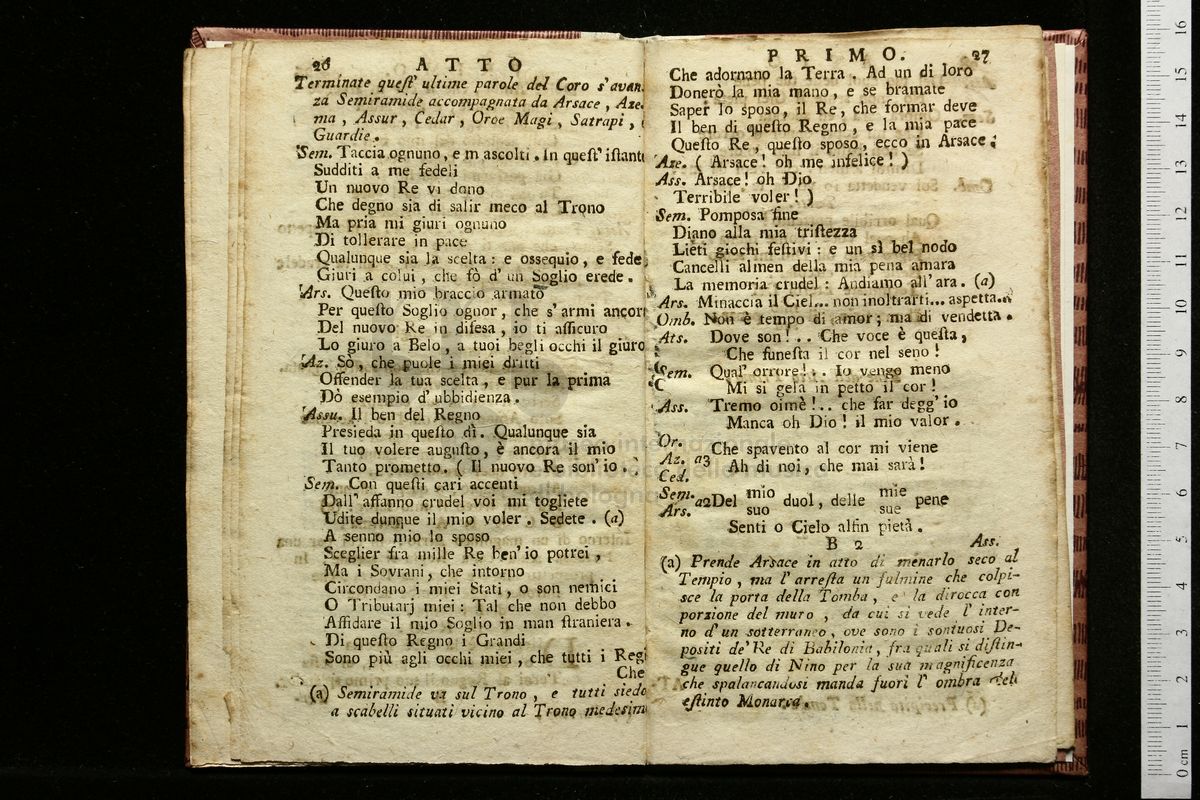 26 ATTO
Terminate queſt' ultime parole del Coro s'avan
za Semiramide accompagnata da Arsace, Aze
ma, Assur, Cedar, Oroe Magi, Satrapi,
Guardie.
Sem. Taccia ognuno, e m ascolti. In queſt' iſtant
Sudditi a me fedeli
Un nuovo Re vi dono
Che degno sia di salir meco al Trono
Ma pria mi giuri ognuno
Di tollerare in pace
Qualunque sia la scelta: e ossequio, e fede
Giuri a colui, che fò d' un Soglio erede.
Ars. Queſto mio braccio armato
Per queſto Soglio ognor, che s'armi ancor
Del nuovo Re in difesa, io ti aſſicuro
Lo giuro a Belo, a tuoi begli occhi il giuro
Az. Sò, che puole i miei dritti
Offender la tua scelta, e pur la prima
Dò esempio d' ubbidienza.
Assu. Il ben del Regno
Presieda in queſto dì. Qualunque sia
Il tuo volere auguſto, è ancora il mio
Tanto prometto. ( Il nuovo Re son' io.
Sem. Con queſti cari accenti
Dall' affanno crudel voi mi togliete
Udite dunque il mio voler. Sedete. (a)
A senno mio lo sposo
Sceglier fra mille Re ben' io potrei,
Ma i Sovrani, che intorno
Circondano i miei Stati, o son nemici
O Tributarj miei: Tal che non debbo
Affidare il mio Soglio in man ſtraniera.
Di queſto Regno i Grandi
Sono più agli occhi miei, che tutti i Regi
Che
(a) Semiramide va sul Trono, e tutti siedo
a scabelli situati vicino al Trono medesim
PRIMO. 27
Che adornano la Terra. Ad un di loro
Donerò la mia mano, e se bramate
Saper lo sposo, il Re, che formar deve
Il ben di queſto Regno, e la mia pace
Queſto Re, queſto sposo, ecco in Arsace.
Aze. ( Arsace! oh me infelice! )
Ass. Arsace! oh Dio
Terribile voler! )
Sem. Pomposa fine
Diano alla mia triſtezza
Lieti giochi feſtivi: e un sì bel nodo
Cancelli almen della mia pena amara
La memoria crudel: Andiamo all'ara. (a)
Ars. Minaccia il Ciel... non inoltrarti... aspetta..
Omb. Non è tempo di amor; ma di vendetta.
Ats. Dove son!.. Che voce è queſta,
Che funeſta il cor nel seno!
Sem. Qual' orrore!.. Io vengo meno
Mi si gela in petto il cor!
Ass. Tremo oimè!.. che far degg' io
Manca oh Dio! il mio valor.
Or.
Az. a3 Che spavento al cor mi viene
Ced. Ah di noi, che mai sarà!
Sem. mio mie
a2 Del duol, delle pene
Ars. suo sue
Senti o Cielo alfin pietà.
B 2 Ass.
(a) Prende Arsace in atto di menarlo seco al
Tempio, ma l' arreſta un fulmine che colpi-
sce la porta della Tomba, e la dirocca con
porzione del muro, da cui si vede l' inter-
no d'un sotterraneo, ove sono i sontuosi De-
positi de' Re di Babilonia, fra quali si diſtin-
gue quello di Nino per la sua magnificenza
che spalancandosi manda fuori l' ombra dell
eſtinto Monarca.